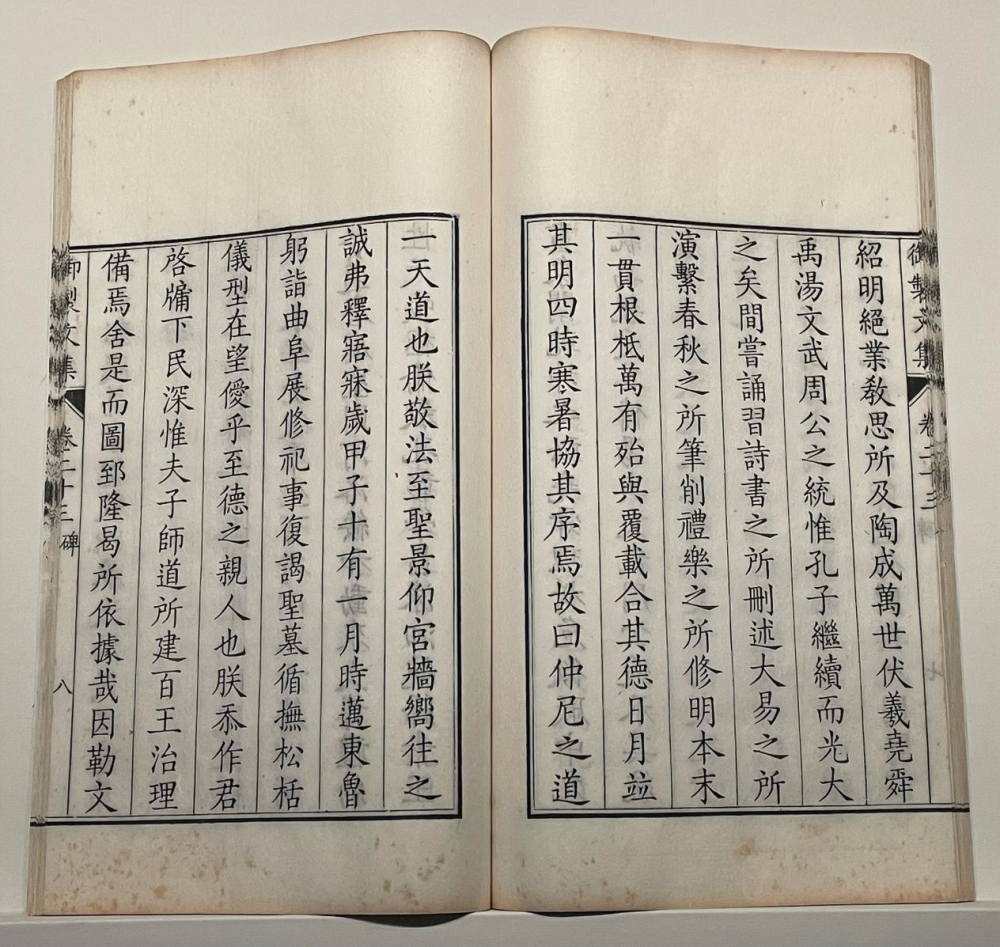 御製文集 卷二十三 碑
紹明絕業敎思所及陶成萬世伏羲堯舜
禹湯文武周公之統惟孔子繼續而光大
之矣間嘗誦習詩書之所刪述大易之所
演繫春秋之所筆削禮樂之所修明本末
一貫根柢萬有殆與覆載合其德日月竝
其明四時寒暑協其序焉故曰仲尼之道
一天道也朕敬法至聖景仰宮牆嚮往之
誠弗釋寤寐歲甲子十有一月時邁東魯
躬詣曲阜展修祀事復謁聖墓循撫松栝
儀型在望僾乎至德之親人也朕忝作君
啓牗下民深惟夫子師道所建百王治理
備焉舍是而圖郅隆曷所依據哉因勒文
御製文集 卷二十三 碑 八